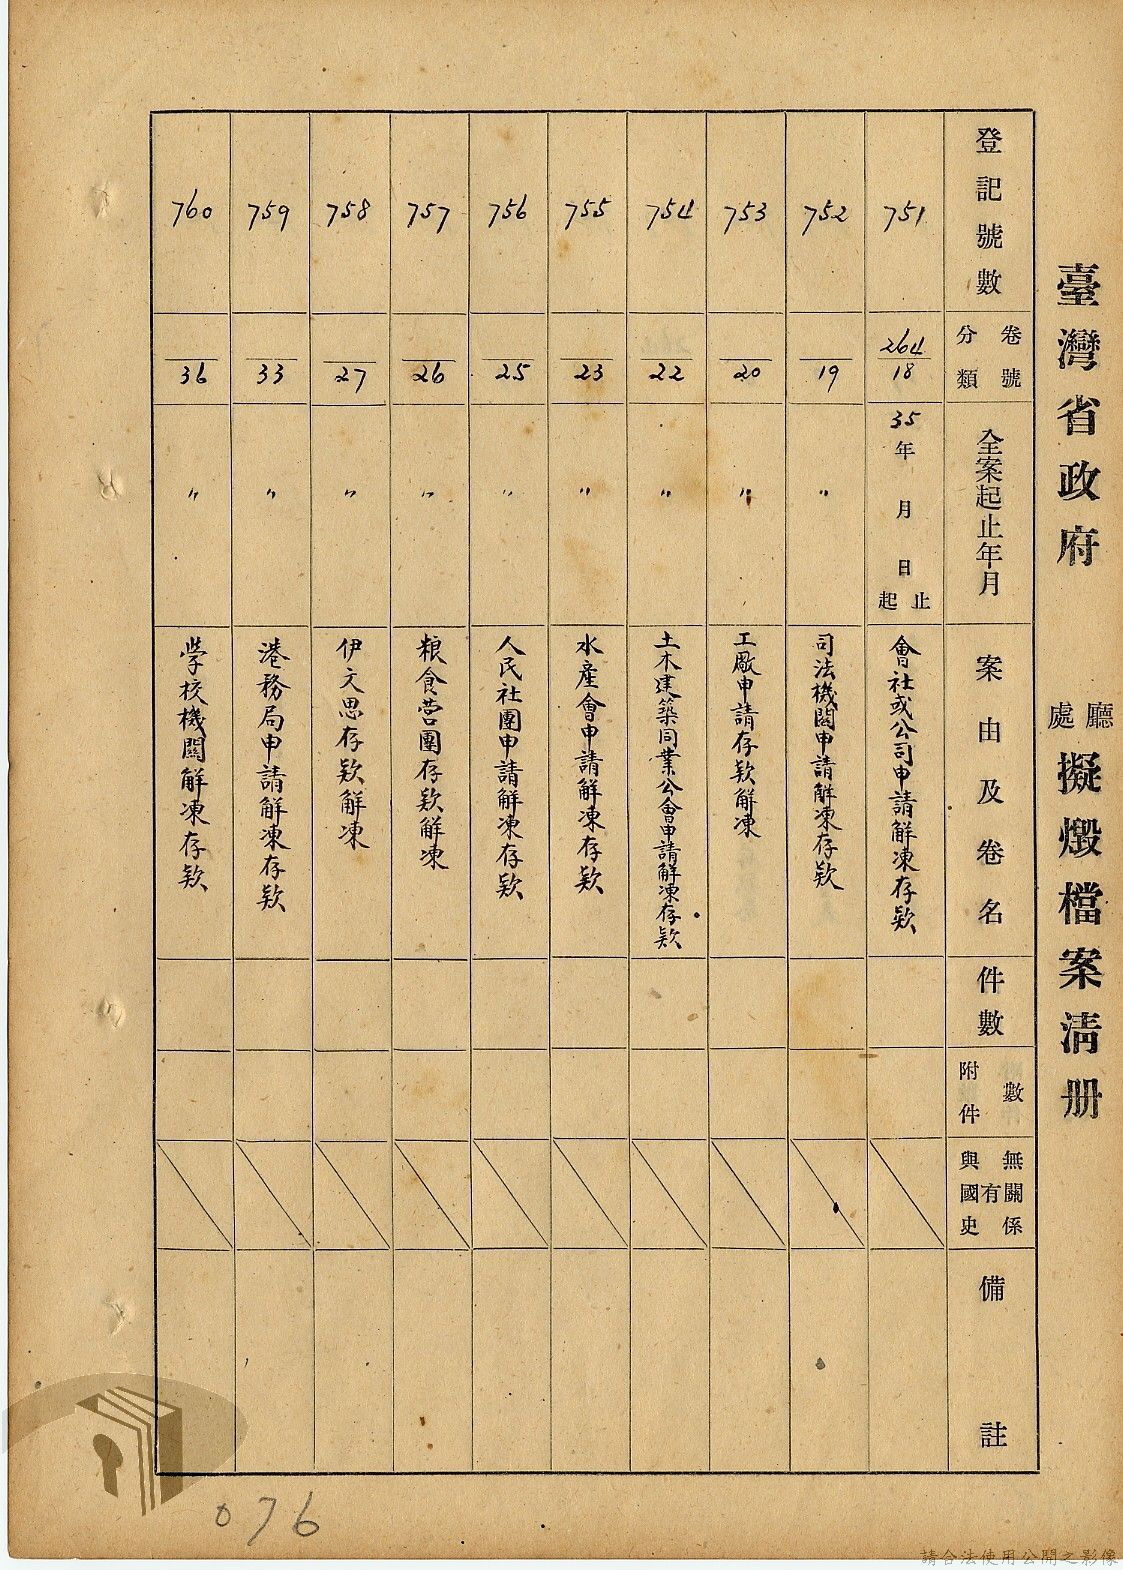 臺灣省政府 廳處 擬燬檔案清册
登記號數 卷號分類 全案起止年月 案由及卷名 件數 附件數 與國史有無關係 備註
751 264/18 35年 月 日起止 會社或公司申請解凍存欵
752 19 〃 司法機関申請解凍存欵
753 20 〃 工廠申請存欵解凍
754 22 〃 土木建築同業公會申請解凍存欵
755 23 〃 水產會申請解凍存欵
756 25 〃 人民社團申請解凍存欵
757 26 〃 粮食营團存欵解凍
758 27 〃 伊文思存欵解凍
759 33 〃 港務局申請解凍存欵
760 36 〃 学校機関解凍存欵
076
請合法使用公開之影像